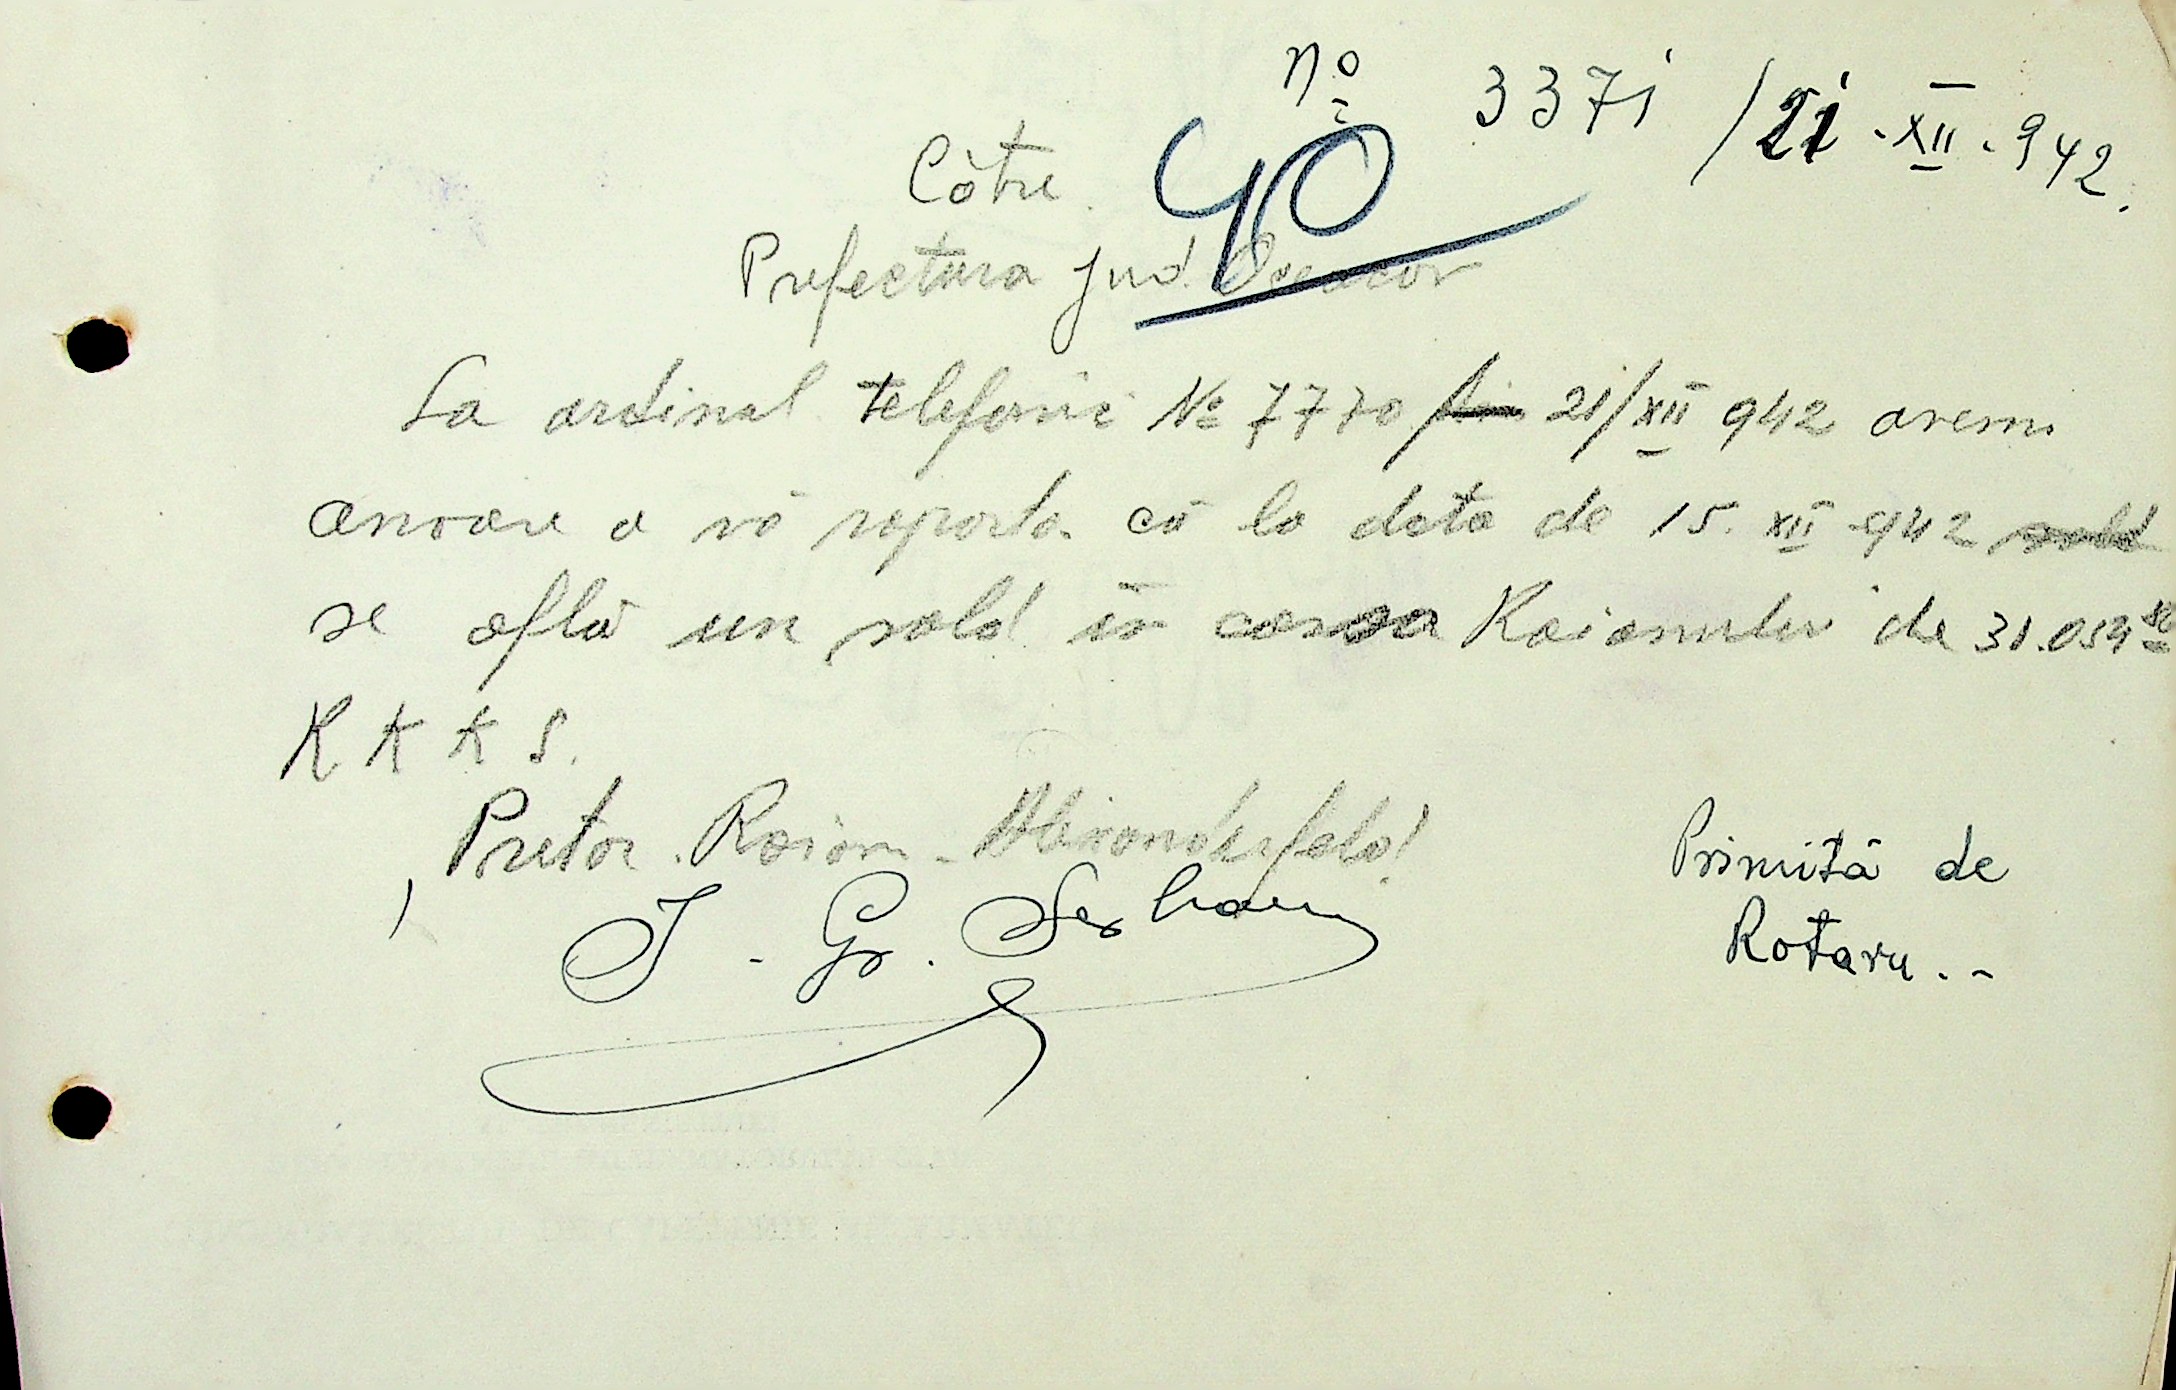 No 3371 / 21 · XII · 942.
Cótre
40
Prefectura jud. Oceacov
La ordinul telefonic No 7770 din 21/XII 942 avem
onoare a vă raporta că la data de 15. XII 942 sold
se află un sold în casa Raionului de 31.054
R K K S.
Pretor Raion - Alixanderfeld
J - Gr. Serban
Primită de
Rotaru . -